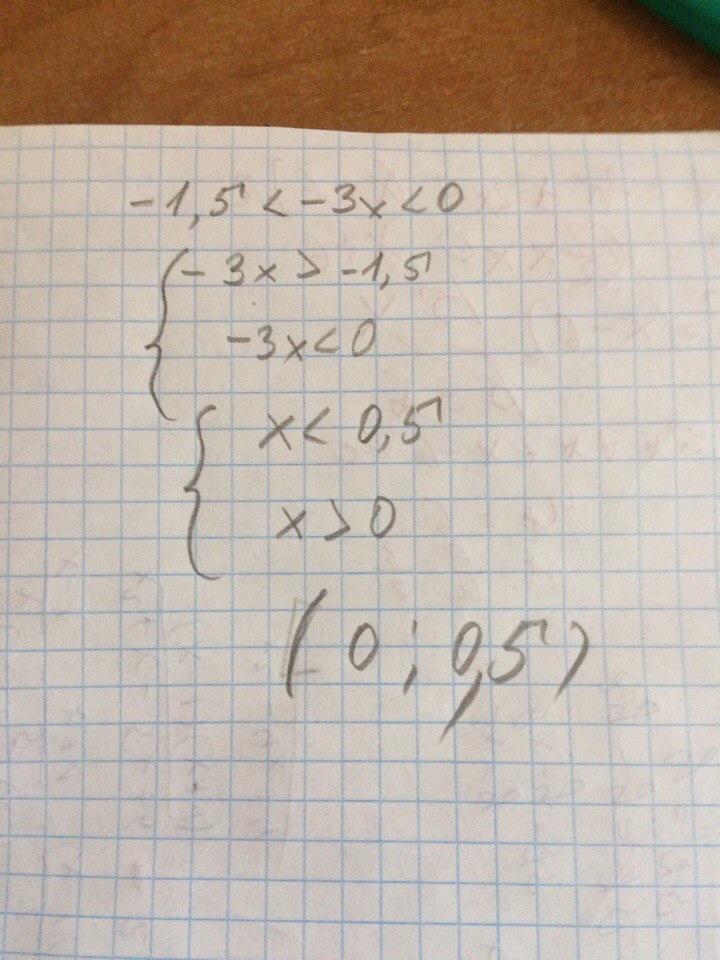 -1,5 < -3x < 0
- 3x > -1,5
-3x < 0
x < 0,5
x > 0
( 0 ; 0,5 )